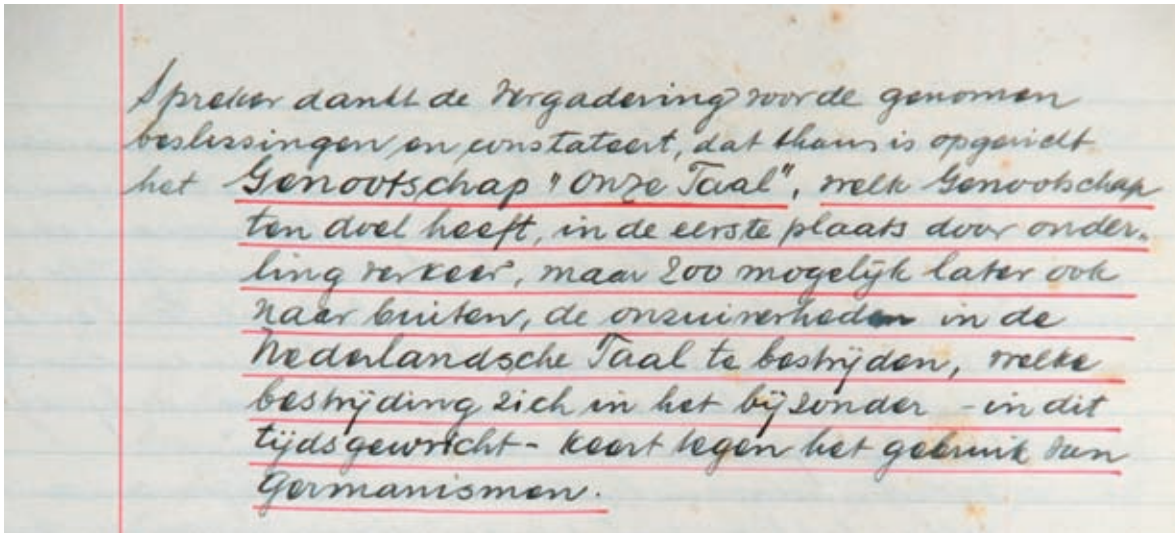 Spreker dankt de vergadering voor de genomen
beslissingen en constateert, dat thans is opgericht
het Genootschap "Onze Taal", welk Genootschap
ten doel heeft, in de eerste plaats door onder-
ling verkeer, maar zoo mogelijk later ook
naar buiten, de onzuiverheden in de
Nederlandsche Taal te bestrijden, welke
bestrijding zich in het bijzonder - in dit
tijdsgewricht - keert tegen het gebruik van
Germanismen.